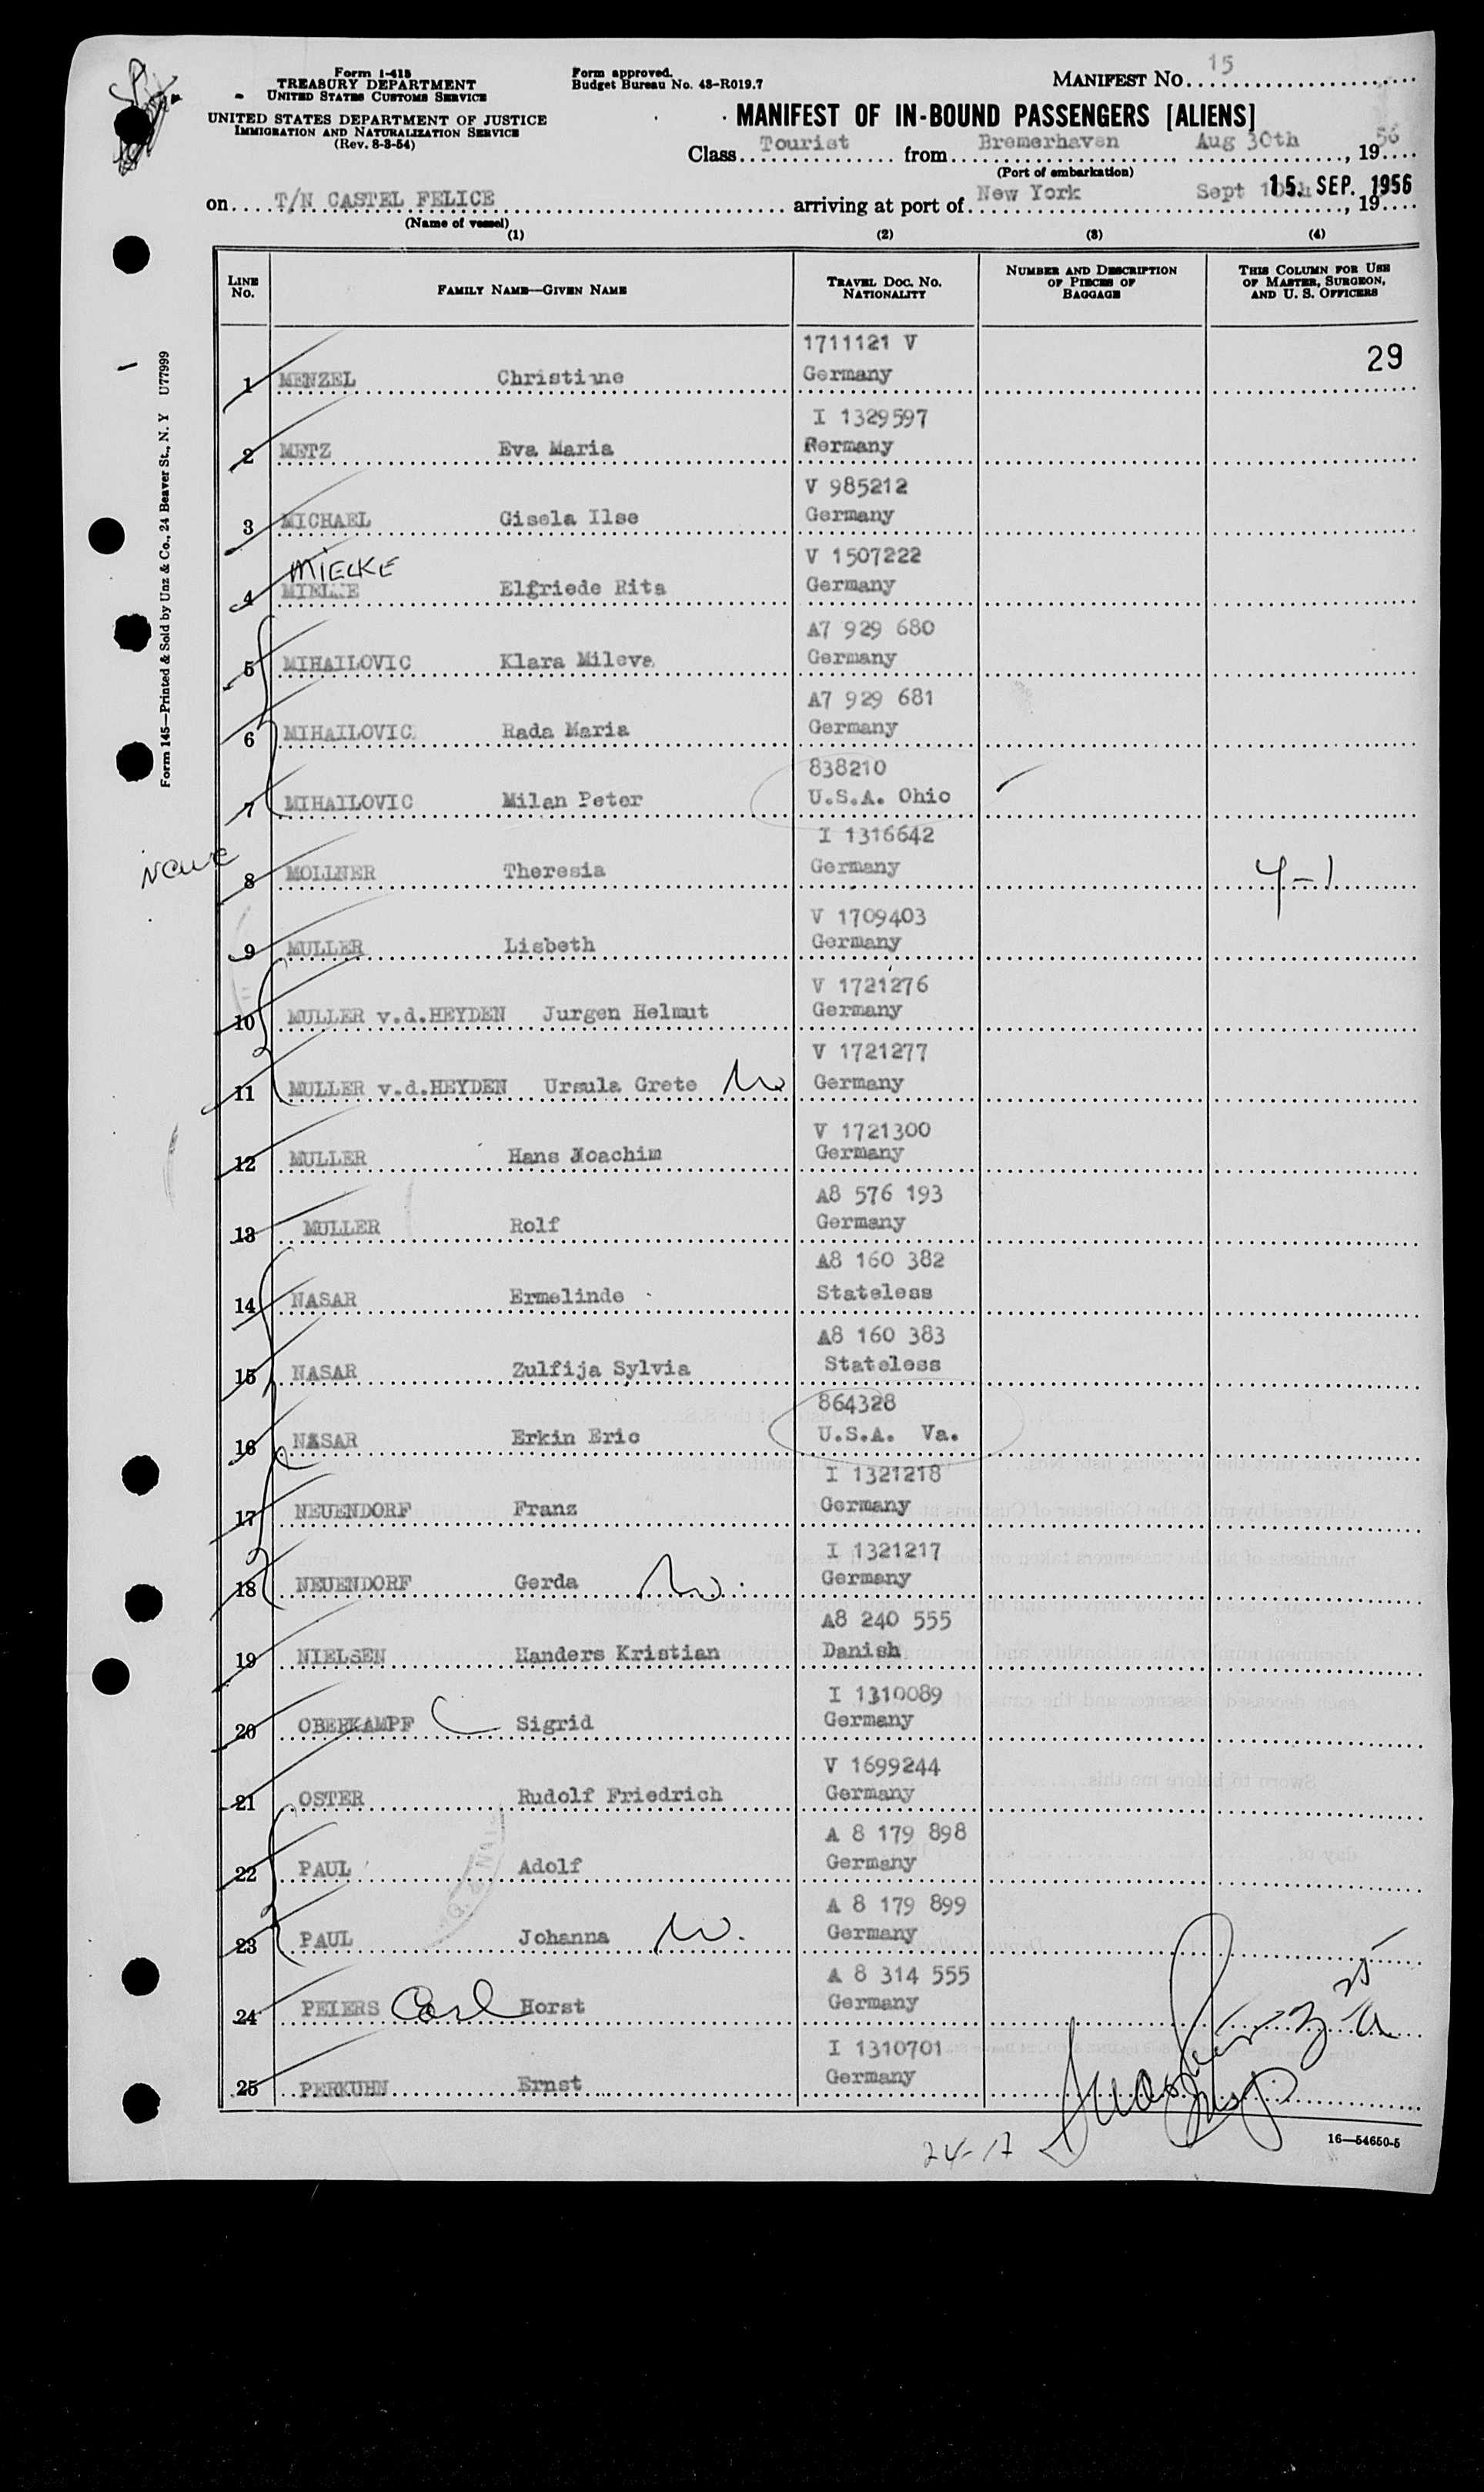 Form I-418
TREASURY DEPARTMENT
UNITED STATES CUSTOMS SERVICE
UNITED STATES DEPARTMENT OF JUSTICE
IMMIGRATION AND NATURALIZATION SERVICE
(Rev. 8-3-54)
Form approved.
Budget Bureau No. 43-R019.7
MANIFEST No. 15
MANIFEST OF IN-BOUND PASSENGERS [ALIENS]
Class Tourist from Bremerhaven, Aug 30th, 1956
(Port of embarkation)
on T/N CASTEL FELICE arriving at port of New York Sept 15. SEP. 1956, 19
(Name of vessel)
(1) (2) (3) (4)
LINE No. FAMILY NAME—GIVEN NAME TRAVEL DOC. NO. NATIONALITY NUMBER AND DESCRIPTION OF PIECES OF BAGGAGE THIS COLUMN FOR USE OF MASTER, SURGEON, AND U. S. OFFICERS
1711121 V
29
1 MENZEL Christinne Germany
I 1329597
2 METZ Eva Maria Rermany
V 985212
3 MICHAEL Gisela Ilse Germany
MIELKE V 1507222
4 MIELKE Elfriede Rita Germany
A7 929 680
5 MIHAILOVIC Klara Mileva Germany
A7 929 681
6 MIHAILOVIC Rada Maria Germany
838210
7 MIHAILOVIC Milan Peter U.S.A. Ohio
I 1316642
8 MOLLNER Theresia Germany 4-1
V 1709403
9 MULLER Lisbeth Germany
V 1721276
10 MULLER v.d.HEYDEN Jurgen Helmut Germany
V 1721277
11 MULLER v.d.HEYDEN Ursula Grete Germany
V 1721300
12 MULLER Hans Joachim Germany
A8 576 193
13 MULLER Rolf Germany
A8 160 382
14 NASAR Ermelinde Stateless
A8 160 383
15 NASAR Zulfija Sylvia Stateless
864328
16 NASAR Erkin Eric U.S.A. Va.
I 1321218
17 NEUENDORF Franz Germany
I 1321217
18 NEUENDORF Gerda Germany
A8 240 555
19 NIELSEN Handers Kristian Danish
I 1310089
20 OBERKAMPF Sigrid Germany
V 1699244
21 OSTER Rudolf Friedrich Germany
A 8 179 898
22 PAUL Adolf Germany
A 8 179 899
23 PAUL Johanna Germany
A 8 314 555
24 PEIERS Carl Horst Germany
I 1310701
25 PERKUHN Ernst Germany
24-17
16—54650-5
Form 145—Printed & Sold by Unz & Co., 24 Beaver St., N. Y U77999